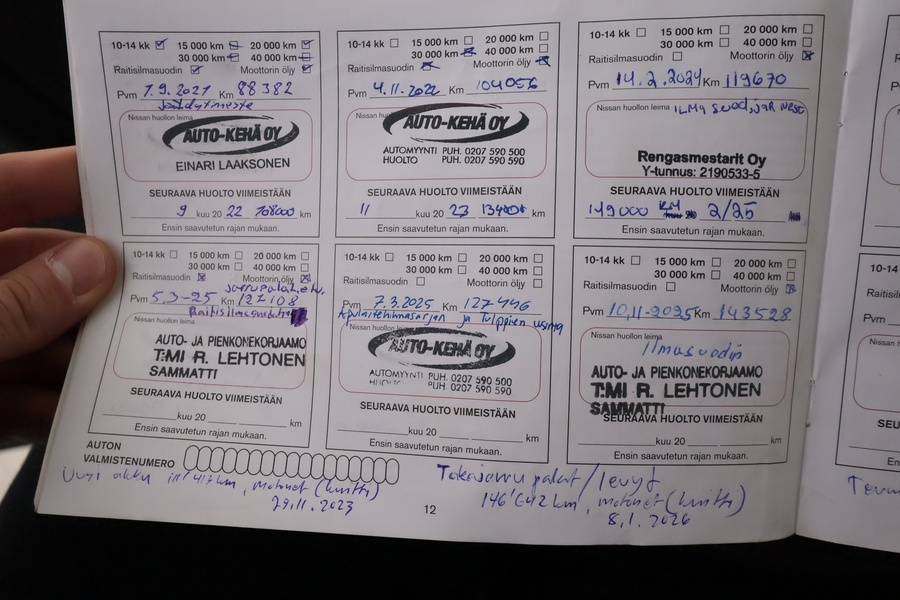 10-14 kk 15 000 km 20 000 km
30 000 km 40 000 km
Raitisilmasuodin Moottorin öljy
Pvm 7.9.2021 Km 88 382
Nissan huollon leima
AUTO-KEHÄ OY
EINARI LAAKSONEN
SEURAAVA HUOLTO VIIMEISTÄÄN
9 kuu 20 22 108000 km
Ensin saavutetun rajan mukaan.
10-14 kk 15 000 km 20 000 km
30 000 km 40 000 km
Raitisilmasuodin Moottorin öljy
Pvm 4.11.2022 Km 104056
Nissan huo
AUTO-KEHÄ OY
AUTOMYYNTI PUH. 0207 590 500
HUOLTO PUH. 0207 590 590
SEURAAVA HUOLTO VIIMEISTÄÄN
11 kuu 20 23 km
Ensin saavutetun rajan mukaan.
10-14 kk 15 000 km 20 000 km
30 000 km 40 000 km
Raitisilmasuodin Moottorin öljy
Pvm 14.2.2024 Km 119670
Nissan huollon leima
Rengasmestarit Oy
Y-tunnus: 2190533-5
SEURAAVA HUOLTO VIIMEISTÄÄN
149000 KM 2/25
Ensin saavutetun rajan mukaan.
10-14 kk 15 000 km 20 000 km
30 000 km 40 000 km
Raitisilmasuodin Moottorin öljy
Pvm 5.3-25 Km 127108
Nissan huollon leima
AUTO- JA PIENKONEKORJAAMO
T:MI R. LEHTONEN
SAMMATTI
SEURAAVA HUOLTO VIIMEISTÄÄN
kuu 20 km
Ensin saavutetun rajan mukaan.
10-14 kk 15 000 km 20 000 km
30 000 km 40 000 km
Raitisilmasuodin Moottorin öljy
Pvm 7.3.2025 Km 127446
Apulaitehihnasarjan ja tulppien
Nissan huollon
AUTO-KEHÄ OY
AUTOMYYNTI PUH. 0207 590 500
HUOLTO PUH. 0207 590 590
SEURAAVA HUOLTO VIIMEISTÄÄN
kuu 20 km
Ensin saavutetun rajan mukaan.
10-14 kk 15 000 km 20 000 km
30 000 km 40 000 km
Raitisilmasuodin Moottorin öljy
Pvm 10.11-2025 Km 143528
Nissan huollon leima
Ilmasuodin
AUTO- JA PIENKONEKORJAAMO
T:MI R. LEHTONEN
SAMMATTI
SEURAAVA HUOLTO VIIMEISTÄÄN
kuu 20 km
Ensin saavutetun rajan mukaan.
AUTON
VALMISTENUMERO
Uusi akku km, Motonet (kuitti)
29.11.2023
12
Takajarru palat / levyt
146'642 km, Motonet (kuitti)
8.1.2026